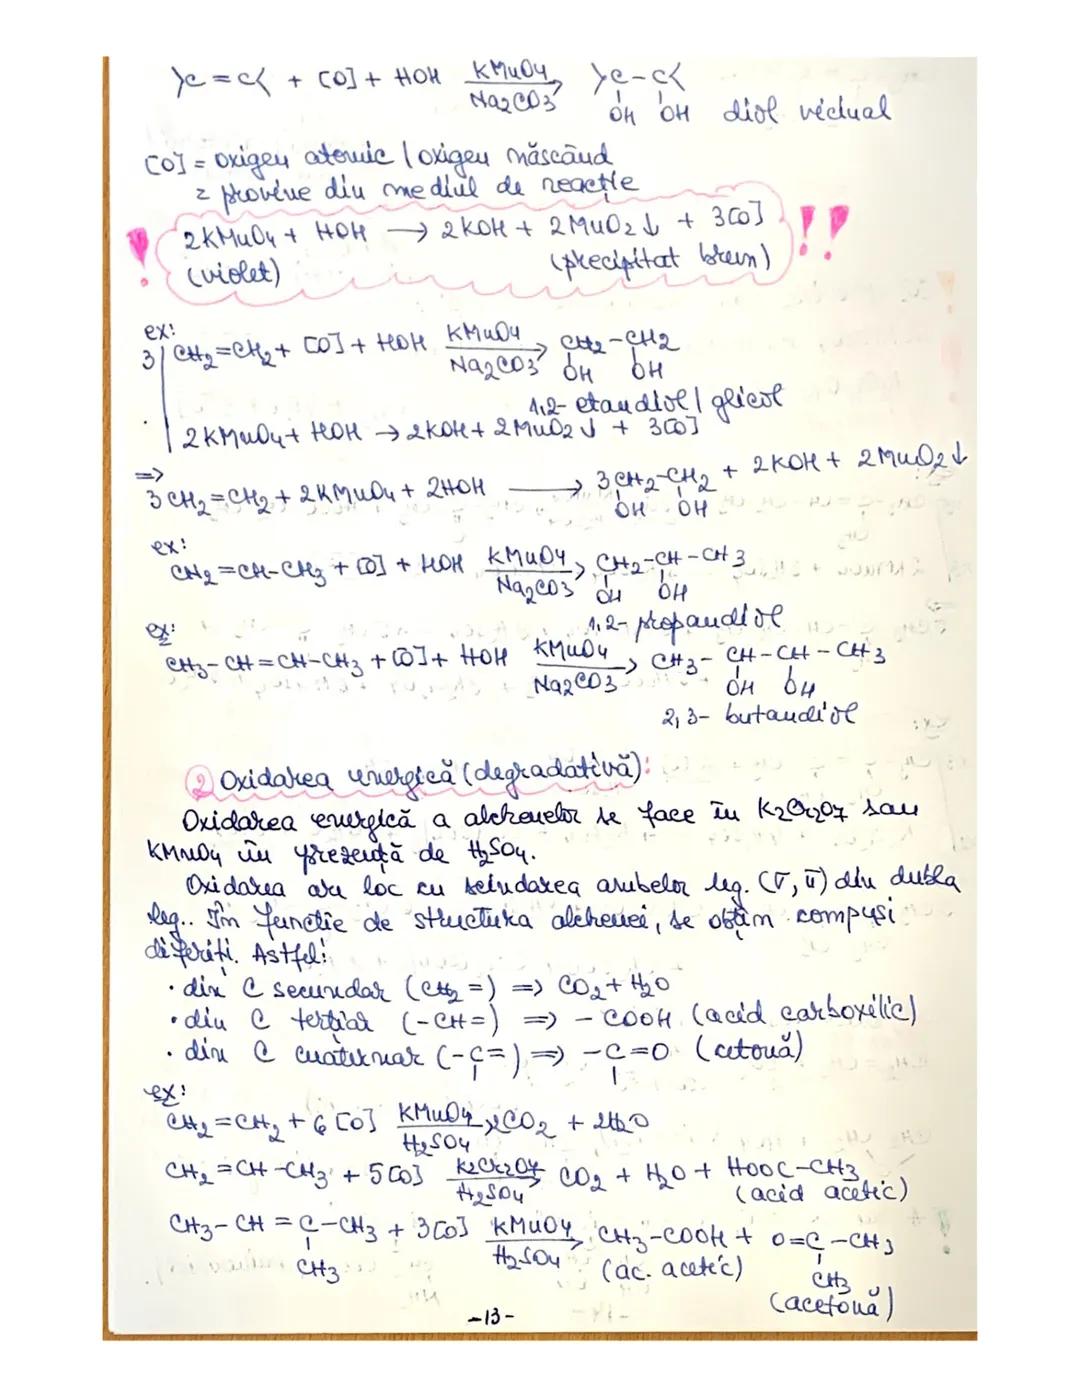 >C=C< + [O] + HOH KMnO4 / Na2CO3 → >C-C<
OH OH diol vicinal
[O] = oxigen atomic / oxigen născând
= provine din mediul de reacție
! 2KMnO4 + HOH → 2KOH + 2MnO2↓ + 3[O] !!
(violet) (precipitat brun)
ex:
3| CH2=CH2 + [O] + HOH KMnO4 / Na2CO3 → CH2-CH2
OH OH
1,2-etandiol / glicol
| 2KMnO4 + HOH → 2KOH + 2MnO2↓ + 3[O]
=>
3CH2=CH2 + 2KMnO4 + 2HOH → 3CH2-CH2 + 2KOH + 2MnO2↓
OH OH
ex:
CH2=CH-CH3 + [O] + HOH KMnO4 / Na2CO3 → CH2-CH-CH3
OH OH
1,2-propandiol
ex:
CH3-CH=CH-CH3 + [O] + HOH KMnO4 / Na2CO3 → CH3-CH-CH-CH3
OH OH
2,3-butandiol
② Oxidarea energică (degradativă):
Oxidarea energică a alchenelor se face în K2Cr2O7 sau
KMnO4 în prezență de H2SO4.
Oxidarea are loc cu scindarea ambelor leg. (σ, π) din dubla
leg.. În funcție de structura alchenei, se obțin compuși
diferiți. Astfel:
· din C secundar (CH2=) => CO2 + H2O
· din C terțiar (-CH=) => -COOH (acid carboxilic)
· din C cuaternar (-C=) => -C=O (cetonă)
ex:
CH2=CH2 + 6[O] KMnO4 / H2SO4 → 2CO2 + 2H2O
CH2=CH-CH3 + 5[O] K2Cr2O7 / H2SO4 → CO2 + H2O + HOOC-CH3
(acid acetic)
CH3-CH=C-CH3 + 3[O] KMnO4 / H2SO4 → CH3-COOH + O=C-CH3
CH3 (ac. acetic) CH3
(acetonă)
-13-